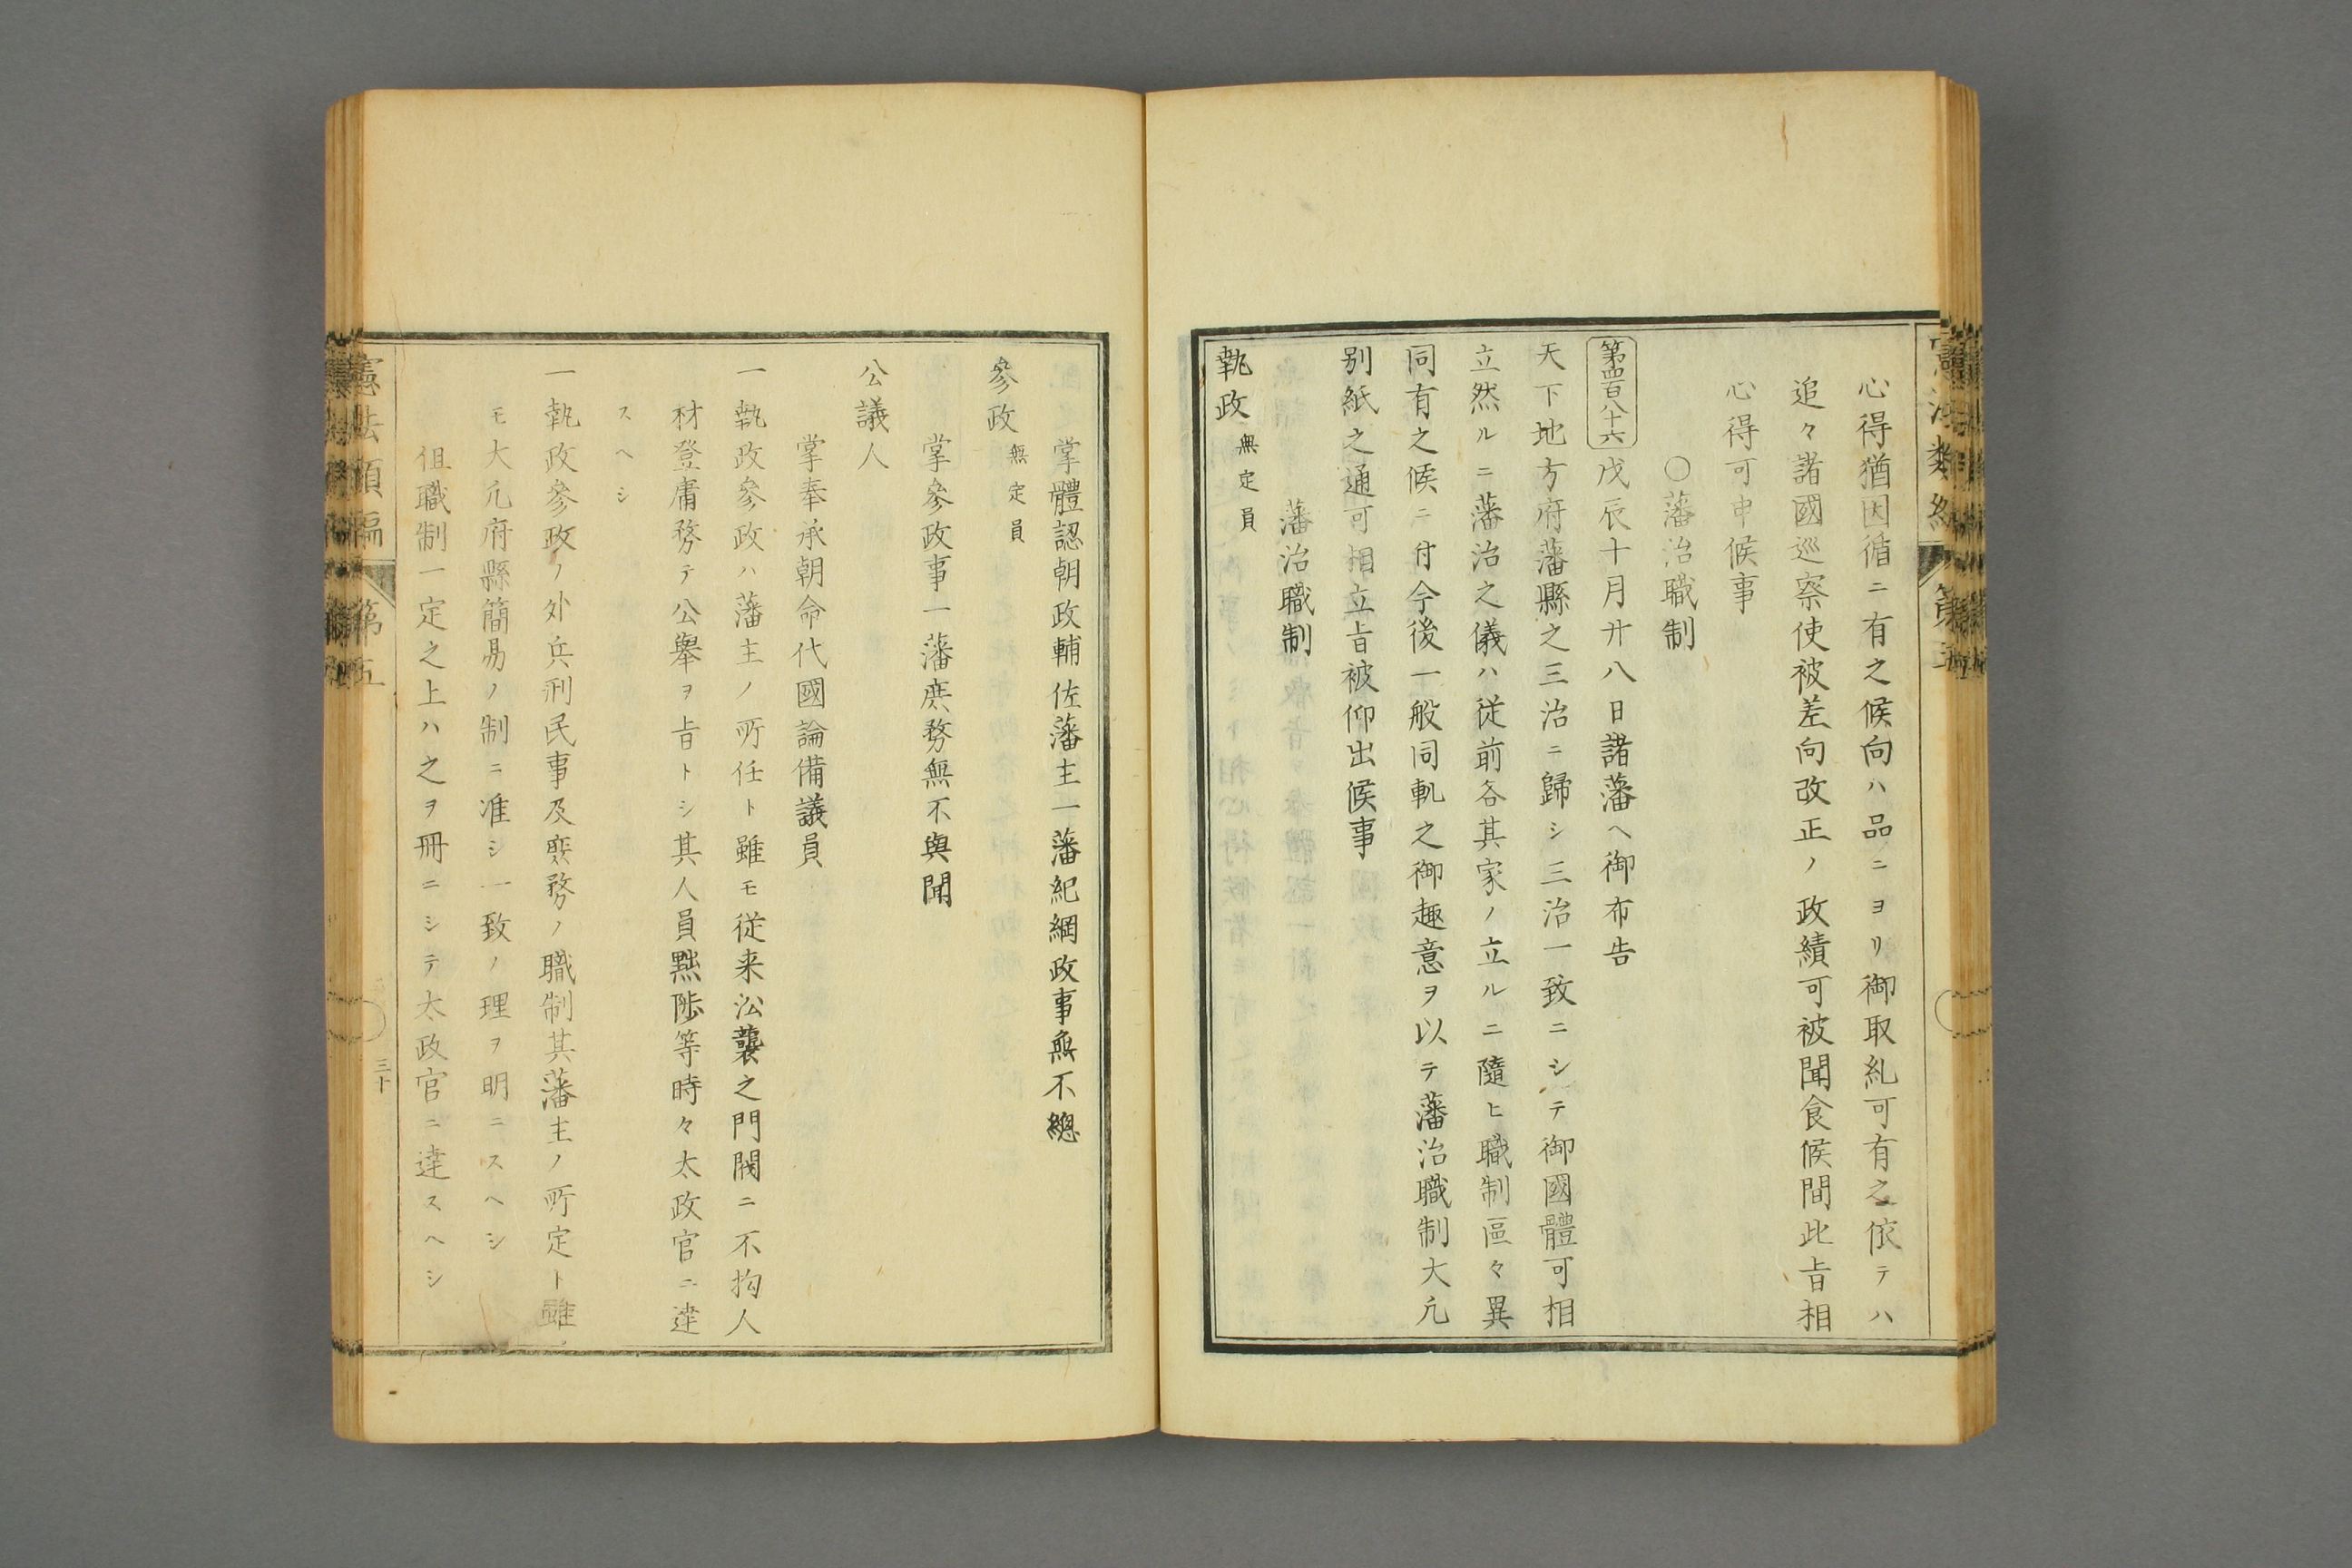 心得猶因循ニ有之候向ハ品ニヨリ御取糺可有之依テハ
追々諸國巡察使被差向改正ノ政績可被聞食候間此旨相
心得可申候事
○藩治職制
第四百八十六 戊辰十月廿八日諸藩ヘ御布告
天下地方府藩縣之三治ニ歸シ三治一致ニシテ御國體可相
立然ルニ藩治之儀ハ従前各其家ノ立ルニ隨ヒ職制區々異
同有之候ニ付今後一般同軌之御趣意ヲ以テ藩治職制大凢
別紙之通可相立旨被仰出候事
藩治職制
執政 無定員
掌體認朝政輔佐藩主一藩紀綱政事無不總
參政 無定員
掌參政事一藩庶務無不與聞
公議人
掌奉承朝命代國論備議員
一執政參政ハ藩主ノ所任ト雖モ従来沿襲之門閥ニ不拘人
材登庸務テ公擧ヲ旨トシ其人員黜陟等時々太政官ニ達
スヘシ
一執政參政ノ外兵刑民事及庶務ノ職制其藩主ノ所定ト雖
モ大凢府縣簡易ノ制ニ准シ一致ノ理ヲ明ニスヘシ
但職制一定之上ハ之ヲ冊ニシテ太政官ニ達スヘシ
憲法類編 第五
三十